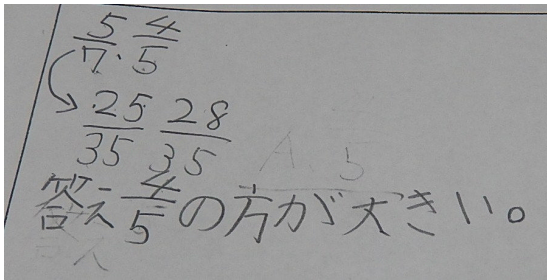 5/7, 4/5
25/35 28/35
答え 4/5 の方が大きい。